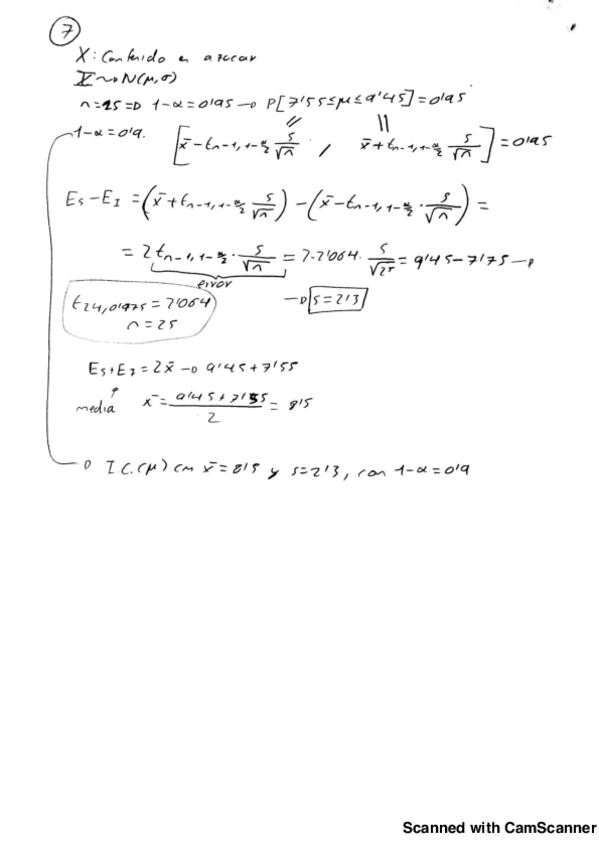 7
X: Contenido en azúcar
X ~> N(μ, σ)
n=25 => 1-α=0'95 -> P[7'55≤μ≤9'45]=0'95
1-α=0'9. [x̄-t_{n-1, 1-α/2} s/√n , x̄+t_{n-1, 1-α/2} s/√n]=0'95
E_S - E_I = (x̄+t_{n-1, 1-α/2} s/√n) - (x̄-t_{n-1, 1-α/2} · s/√n) =
= 2 t_{n-1, 1-α/2} · s/√n = 2·2'064 · s/√25 = 9'45-7'75 ->
error
t_{24, 0'975} = 2'064 -> s=2'3
n=25
E_S+E_I = 2x̄ -> 9'45+7'55
media x̄ = (9'45+7'55)/2 = 8'5
-> I.C.(μ) con x̄=8'5 y s=2'3, con 1-α=0'9
Scanned with CamScanner